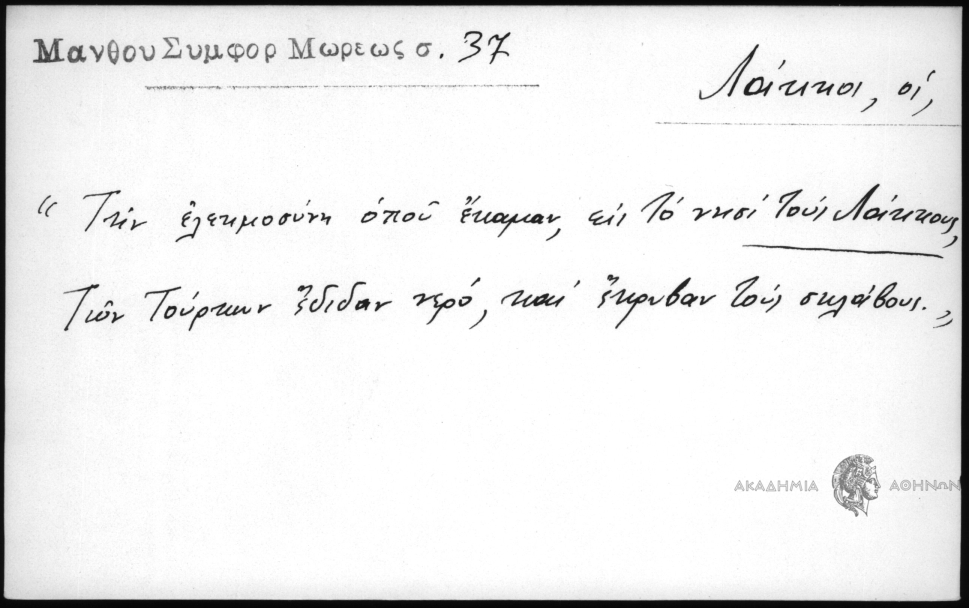 Μανθου Συμφορ Μωρεως σ. 37
Λάκκοι, οἱ,
“ Τὴν ἐλεημοσύνη ὁποῦ ἔκαμαν, εἰς τὸ νησὶ τοὺς Λάκκους,
Τῶν Τούρκων ἔδιδαν νερό, καὶ ἔκρυβαν τοὺς σκλάβους. „
ΑΚΑΔΗΜΙΑ ΑΘΗΝΩΝ